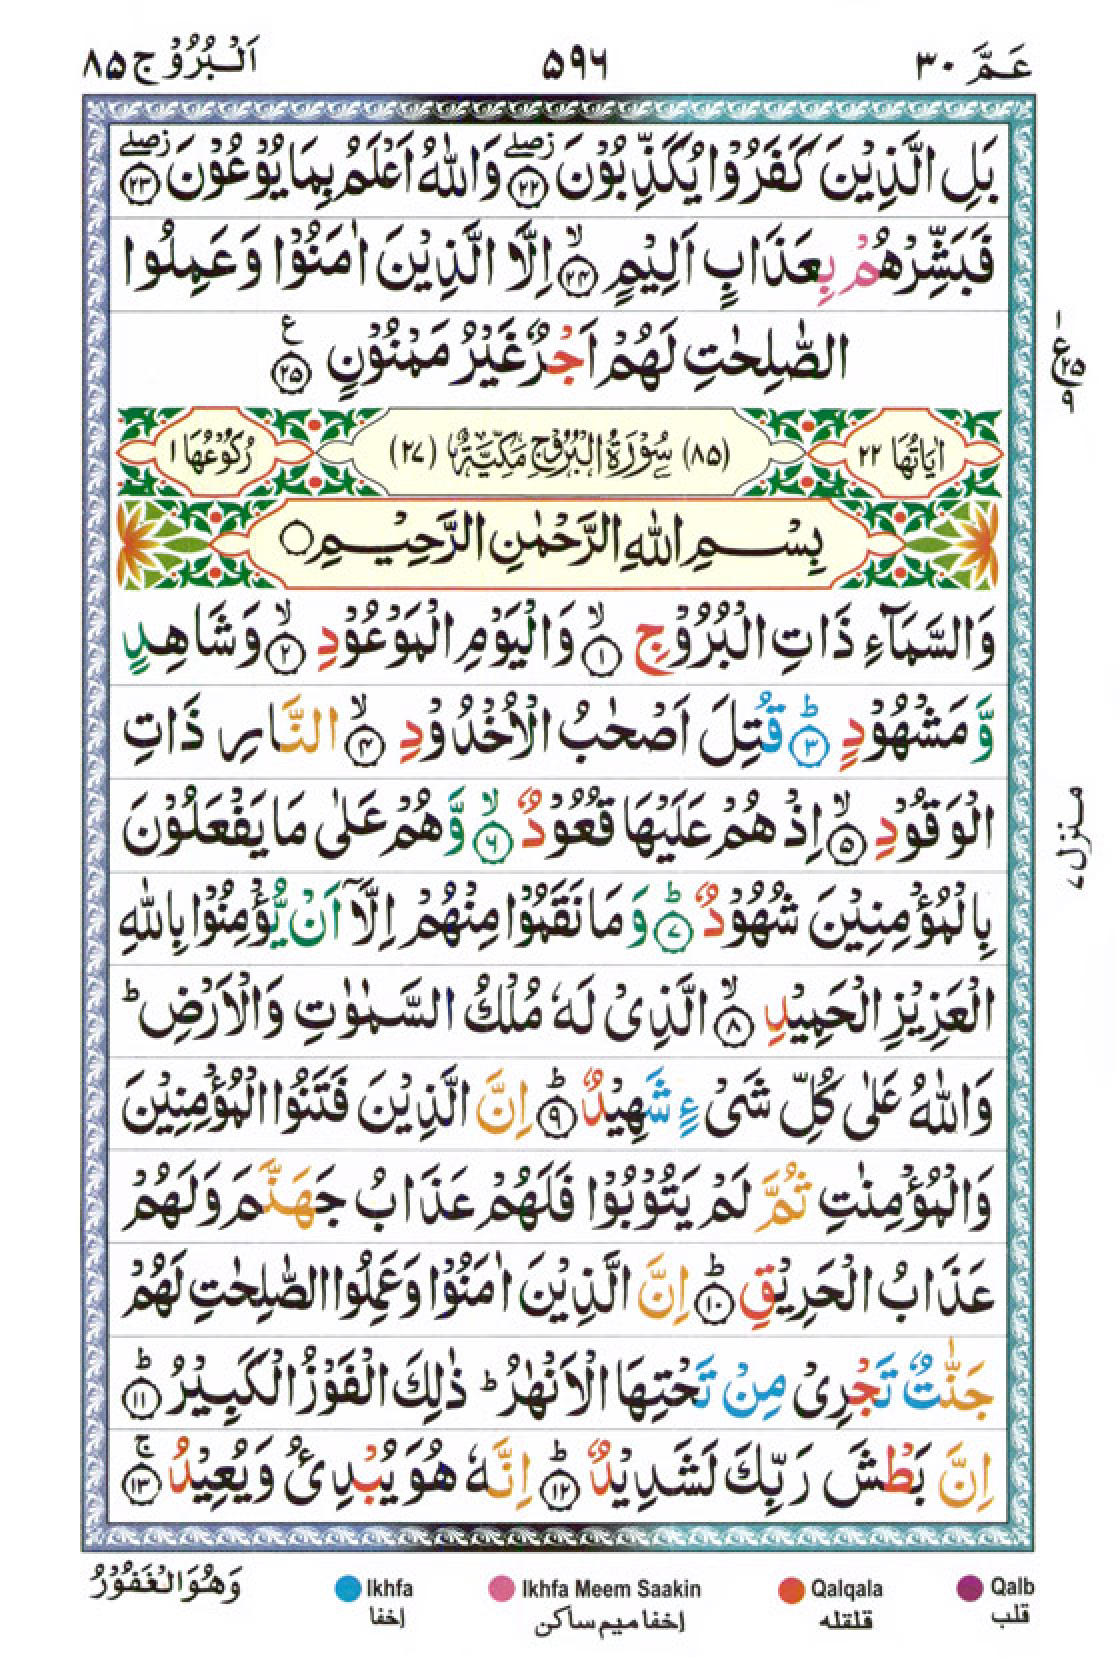 عَمَّ ۳۰
۵۹۶
اَلْبُرُوْج ۸۵
بَلِ الَّذِيْنَ كَفَرُوْا يُكَذِّبُوْنَ ۲۲ زصلے وَاللّٰهُ اَعْلَمُ بِمَا يُوْعُوْنَ ۲۳ زصلے
فَبَشِّرْهُمْ بِعَذَابٍ اَلِيْمٍ ۲۴ لا اِلَّا الَّذِيْنَ اٰمَنُوْا وَعَمِلُوا
الصّٰلِحٰتِ لَهُمْ اَجْرٌ غَيْرُ مَمْنُوْنٍ ۲۵ ع
ع ۲۵ ۹
اٰيَاتُهَا ۲۲
(۸۵) سُوْرَةُ الْبُرُوْجِ مَكِّيَّةٌ (۲۷)
رُكُوْعُهَا ۱
بِسْمِ اللّٰهِ الرَّحْمٰنِ الرَّحِيْمِ
وَالسَّمَآءِ ذَاتِ الْبُرُوْجِ ۱ لا وَالْيَوْمِ الْمَوْعُوْدِ ۲ لا وَشَاهِدٍ
وَّمَشْهُوْدٍ ۳ ط قُتِلَ اَصْحٰبُ الْاُخْدُوْدِ ۴ لا النَّارِ ذَاتِ
الْوَقُوْدِ ۵ لا اِذْ هُمْ عَلَيْهَا قُعُوْدٌ ۶ لا وَّهُمْ عَلٰى مَا يَفْعَلُوْنَ
منزل ۷
بِالْمُؤْمِنِيْنَ شُهُوْدٌ ۷ ط وَمَا نَقَمُوْا مِنْهُمْ اِلَّآ اَنْ يُّؤْمِنُوْا بِاللّٰهِ
الْعَزِيْزِ الْحَمِيْدِ ۸ لا الَّذِىْ لَهٗ مُلْكُ السَّمٰوٰتِ وَالْاَرْضِ ط
وَاللّٰهُ عَلٰى كُلِّ شَىْءٍ شَهِيْدٌ ۹ ط اِنَّ الَّذِيْنَ فَتَنُوا الْمُؤْمِنِيْنَ
وَالْمُؤْمِنٰتِ ثُمَّ لَمْ يَتُوْبُوْا فَلَهُمْ عَذَابُ جَهَنَّمَ وَلَهُمْ
عَذَابُ الْحَرِيْقِ ۱۰ ط اِنَّ الَّذِيْنَ اٰمَنُوْا وَعَمِلُوا الصّٰلِحٰتِ لَهُمْ
جَنّٰتٌ تَجْرِىْ مِنْ تَحْتِهَا الْاَنْهٰرُ ط ذٰلِكَ الْفَوْزُ الْكَبِيْرُ ۱۱ ط
اِنَّ بَطْشَ رَبِّكَ لَشَدِيْدٌ ۱۲ ط اِنَّهٗ هُوَ يُبْدِئُ وَيُعِيْدُ ۱۳ ج
وَهُوَ الْغَفُوْرُ
Ikhfa
Ikhfa Meem Saakin
Qalqala
Qalb
اخفا
اخفا میم ساکن
قلقله
قلب